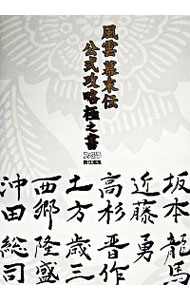 風雲幕末伝
公式攻略極之書
責任編集
坂本龍馬
近藤勇
高杉晋作
土方歳三
西郷隆盛
沖田総司